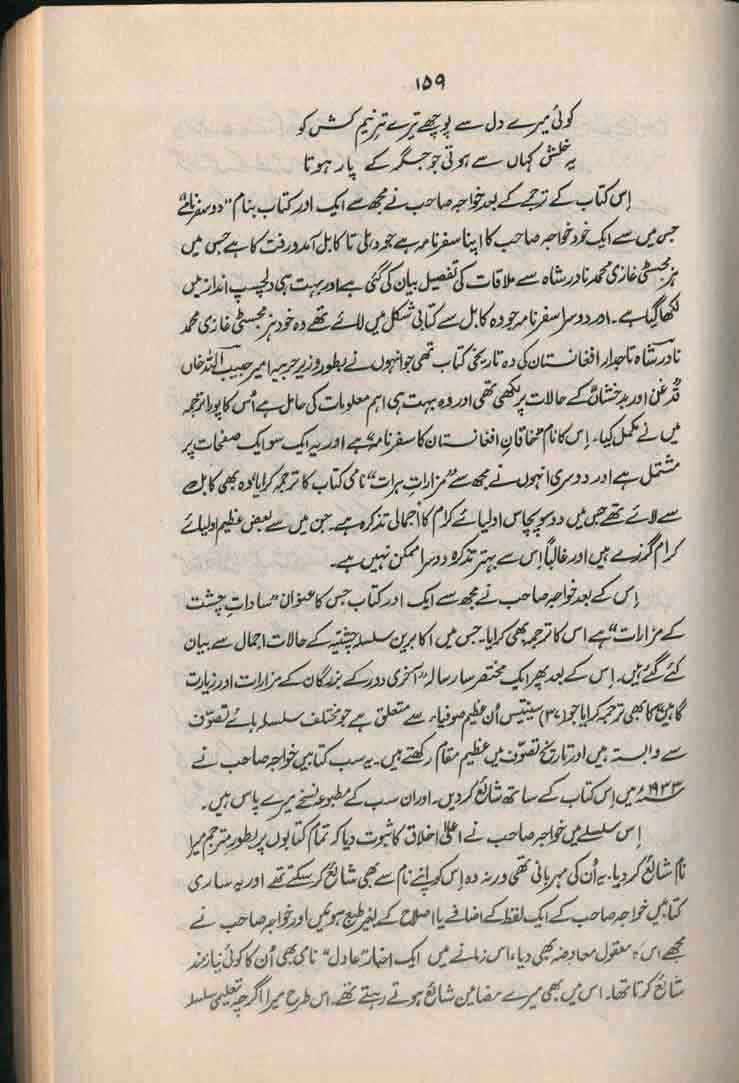 ۱۵۹
کوئی میرے دل سے پوچھے ترے تیرِ نیم کش کو
یہ خلش کہاں سے ہوتی جو جگر کے پار ہوتا
اِس کتاب کے ترجمے کے بعد خواجہ صاحب نے مجھ سے ایک اور کتاب بنام "دو سفرنامے"
جس میں سے ایک خود خواجہ صاحب کا اپنا سفرنامہ ہے جو دہلی تا کابل آمد و رفت کا ہے جس میں
ہز مجسٹی غازی محمد نادر شاہ سے ملاقات کی تفصیل بیان کی گئی ہے اور بہت ہی دلچسپ انداز میں
لکھا گیا ہے۔ اور دوسرا سفرنامہ جو وہ کابل سے کتابی شکل میں لائے تھے وہ خود ہز مجسٹی غازی محمد
نادر شاہ تاجدار افغانستان کی وہ تاریخی کتاب تھی جو انہوں نے بطور وزیر حربیہ امیر حبیب اللہ خاں
قدغن اور بدخشاں کے حالات پر لکھی تھی اور وہ بہت ہی اہم معلومات کی حامل ہے اُس کا پورا ترجمہ
میں نے مکمل کیا۔ اِس کا نام "خاقانِ افغانستان کا سفرنامہ" ہے اور یہ ایک سو ایک صفحات پر
مشتمل ہے اور دوسری انہوں نے مجھ سے "مزاراتِ ہرات" نامی کتاب کا ترجمہ کرایا وہ بھی کابل
سے لائے تھے جس میں دو سو پچاس اولیائے کرام کا اجمالی تذکرہ ہے۔ جن میں سے بعض عظیم اولیائے
کرام گزرے ہیں اور غالباً اِس سے بہتر تذکرہ دوسرا ممکن نہیں ہے۔
اِس کے بعد خواجہ صاحب نے مجھ سے ایک اور کتاب جس کا عنوان "ساداتِ چشت
کے مزارات" ہے اس کا ترجمہ بھی کرایا۔ جس میں اکابرین سلسلہ چشتیہ کے حالات اجمال سے بیان
کئے گئے ہیں۔ اِس کے بعد پھر ایک مختصر سا رسالہ "آخری دور کے بزرگان کے مزارات اور زیارت
گاہیں" کا بھی ترجمہ کرایا جو (۳۷) سینتیس اُن عظیم صوفیاء سے متعلق ہے جو مختلف سلسلہ ہائے تصوّف
سے وابستہ ہیں اور تاریخ تصوّف میں عظیم مقام رکھتے ہیں۔ یہ سب کتابیں خواجہ صاحب نے
۱۹۳۳ء میں اِس کتاب کے ساتھ شائع کر دیں۔ اور ان سب کے مطبوعہ نسخے میرے پاس ہیں۔
اِس سلسلے میں خواجہ صاحب نے اعلیٰ اخلاق کا ثبوت دیا کہ تمام کتابوں پر بطور مترجم میرا
نام شائع کر دیا۔ یہ اُن کی مہربانی تھی ورنہ وہ اِس کو اپنے نام سے بھی شائع کر سکتے تھے اور یہ ساری
کتابیں خواجہ صاحب کے ایک لفظ کے اضافے یا اصلاح کے بغیر طبع ہوئیں اور خواجہ صاحب نے
مجھے اس کا معقول معاوضہ بھی دیا، اس زمانے میں ایک اخبار "عادل" نامی بھی اُن کا کوئی نیاز مند
شائع کرتا تھا۔ اس میں بھی میرے مضامین شائع ہوتے رہتے تھے۔ اس طرح میرا اگرچہ تعلیمی سلسلہ